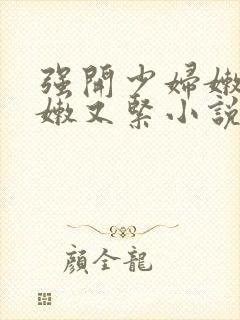 强開少婦嫩
嫩又緊小說
顔全龍